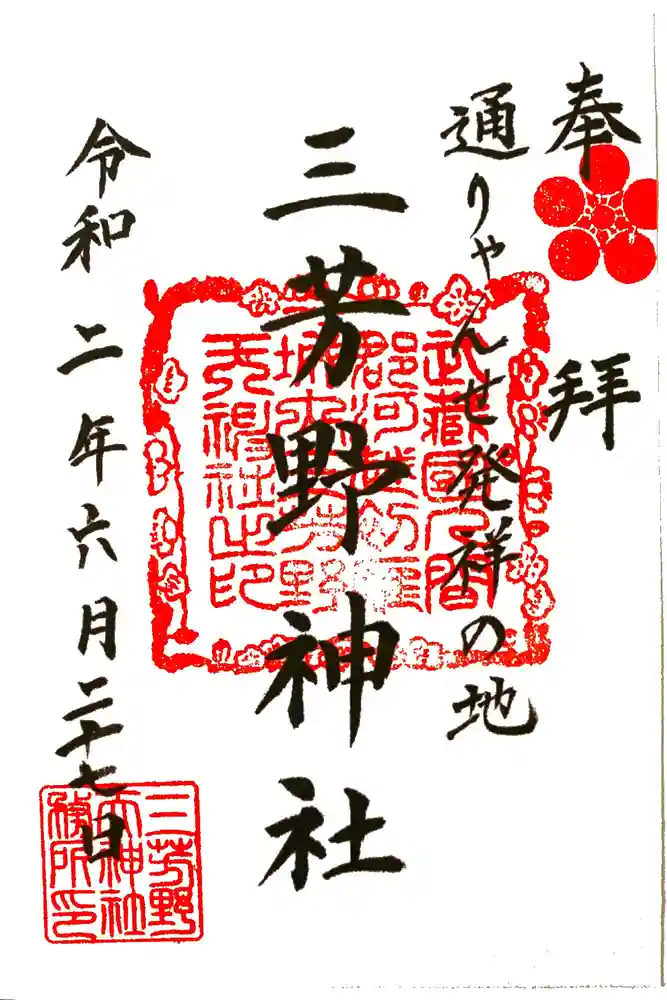 奉拝
通りゃんせ発祥の地
三芳野神社
令和二年六月二十七日
武藏國入間
郡河越初雁
城内三芳野
天神社之印
三芳野
天神社
務所印